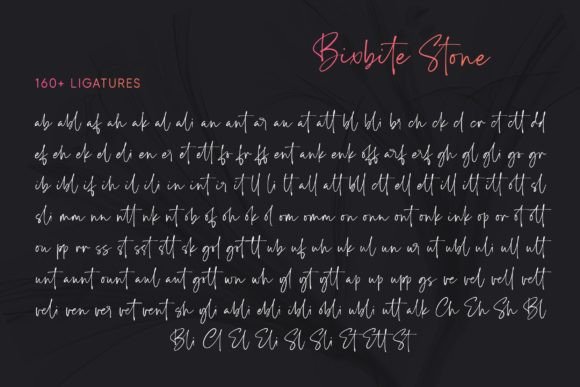 Bixbite Stone
160+ LIGATURES
ab abl af ah ak al ali an ant ar au at att bl bli br ch ck cl cr ct ctt dd
ef eh ek el eli en er et ett fo fr ff ent ank enk off arf erf gh gl gli go gr
ib ibl if ih il ili in int ir it ll li lt all att bll clt ell elt ill itt ilt oll sl
sli mm nn ntt nk nt ob of oh ok ol om omm on onn ont onk ink op or ot ott
ou pp rr ss st sst stt sk gol got tt ub uf uh uk ul un ur ut ubl uli ull ult
unt aunt ount aul aut gott wn wh yl yt ytt ap up upp gs ve vel vell velt
veli ven ver vet vent sh yli abli ebli ibli obli ubli utt alk Ch Eh Sh Bl
Bli Cl El Eli Sl Sli Et Ett St